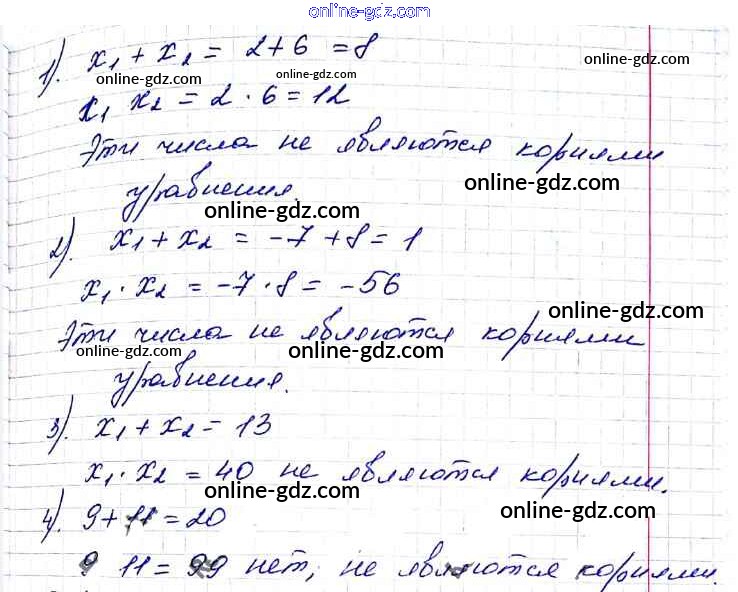 online-gdz.com
1). x₁ + x₂ = 2+6 = 8
online-gdz.com online-gdz.com online-gdz.com
x₁ x₂ = 2 · 6 = 12
Эти числа не являются корнями
уравнения.
online-gdz.com
online-gdz.com
2). x₁ + x₂ = -7 + 8 = 1
x₁ · x₂ = -7 · 8 = -56
online-gdz.com
Эти числа не являются корнями
online-gdz.com online-gdz.com
уравнения.
3). x₁ + x₂ = 13
x₁ · x₂ = 40 не являются корнями.
online-gdz.com
online-gdz.com
4). 9 + 11 = 20
9 11 = 99 нет, не являются корнями.